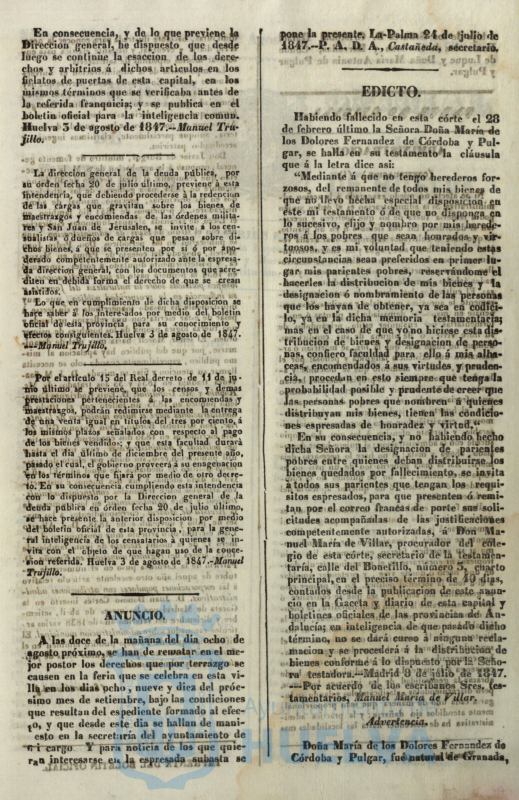 En consecuencia, y de lo que previene la
Direccion general, he dispuesto, que desde
luego se continúe la esaccion de los dere-
chos y arbitrios á dichos artículos en los
fielatos de puertas de esta capital, en los
mismos términos que se verificaba antes de
la referida franquicia; y se publica en el
boletin oficial para la inteligencia comun.
Huelva 3 de agosto de 1847.--Manuel Tru-
jillo.
La direccion general de la deuda pública, por
su órden fecha 20 de julio último, previene á esta
intendencia, que debiendo procederse á la redencion
de las cargas que gravitan sobre los bienes de
maestrazgos y encomiendas de las órdenes milita-
res y San Juan de Jerusalen, se invite á los cen-
sualistas ó dueños de cargas que pesan sobre di-
chos bienes, á que se presenten por sí ó por apo-
derado competentemente autorizado ante la espresa-
da direccion general, con los documentos que acre-
diten en debida forma el derecho de que se crean
asistidos.
Lo que en cumplimiento de dicha disposicion se
hace saber á los interesados por medio del boletin
oficial de esta provincia para su conocimiento y
efectos consiguientes. Huelva 3 de agosto de 1847.
--Manuel Trujillo.
Por el artículo 15 del Real decreto de 11 de ju-
nio último se previene, que los censos y demas
prestaciones pertenecientes á las encomiendas y
maestrazgos, podrán redimirse mediante la entrega
de una venta igual en títulos del tres por ciento, á
los mismos plazos señalados con respecto al pago
de los bienes vendidos; y que esta facultad durará
hasta el dia último de diciembre del presente año,
pasado el cual, el gobierno proveerá á su enagenacion
en los términos que fijará por medio de otro decre-
to. En su consecuencia, cumpliendo esta intendencia
con lo dispuesto por la Direccion general de la
deuda pública en órden fecha 20 de julio último,
se hace presente la anterior disposicion por medio
del boletin oficial de esta provincia, para la gene-
ral inteligencia de los censatarios á quienes se in-
vita con el objeto de que hagan uso de la conce-
sion referida. Huelva 3 de agosto de 1847.-Manuel
Trujillo.
ANUNCIO.
A las doce de la mañana del dia ocho de
agosto próximo, se han de rematar en el me-
jor postor los derechos que por terrazgo se
causen en la feria que se celebra en esta vi-
lla en los dias ocho, nueve y diez del próc-
simo mes de setiembre, bajo las condiciones
que resultan del espediente formado al efec-
to, y que desde este dia se hallan de mani-
esto en la secretaría del ayuntamiento de
mi cargo Y para noticia de los que quie-
ran interesarse en la espresada subasta se
pone la presente. La-Palma 24 de julio de
1847.--P. A. D. A., Castañeda, secretario.
EDICTO.
Habiendo fallecido en esta córte el 28
de febrero último la Señora Doña María de
los Dolores Fernandez de Córdoba y Pul-
gar, se halla en su testamento la cláusula
que á la letra dice asi:
"Mediante á que no tengo herederos for-
zosos, del remanente de todos mis bienes de
que no llevo hecha especial disposicion en
este mi testamento ó de que no disponga en
lo sucesivo, elijo y nombro por mis herede-
ros á los pobres que sean honrados y vir-
tuosos, y es mi voluntad que teniendo estas
circunstancias sean preferidos en primer lu-
gar mis parientes pobres, reservándome el
hacerles la distribucion de mis bienes y la
designacion ó nombramiento de las personas
que los hayan de obtener, ya sea en codici-
lo, ya en la dicha memoria testamentaria
mas en el caso de que yo no hiciese esta dis-
tribucion de bienes y designacion de perso-
nas, confiero facultad para ello á mis alba-
ceas, encomendados á sus virtudes y pruden-
cia, procedan en esto siempre que tenga la
probabilidad posible y prudente de creer que
las personas pobres que nombren á quienes
distribuyan mis bienes, tienen las condicio-
nes espresadas de honradez y virtud."
En su consecuencia, y no habiendo hecho
dicha Señora la designacion de parientes
pobres entre quienes deban distribuirse los
bienes quedados por fallecimiento, se invita
á todos sus parientes que tengan los requi-
sitos espresados, para que presenten ó remi-
tan por el correo francas de porte sus soli-
citudes acompañadas de las justificaciones
competentemente autorizadas, á Don Ma-
nuel María de Villar, procurador del cole-
gio de esta córte, secretario de la testamen-
taría, calle del Bonetillo, número 3, cuarto
principal, en el preciso término de 40 dias,
contados desde la publicacion de este anun-
cio en la Gaceta y diario de esta capital y
boletines oficiales de las provincias de An-
dalucía; en inteligencia de que pasado dicho
término, no se dará curso á ninguna recla-
macion y se procederá á la distribucion de
bienes conforme á lo dispuesto por la Seño-
ra testadora.--Madrid 8 de julio de 1847.
--Por acuerdo de los escribanos Sres. tes-
tamentarios, Manuel María de Villar.
Advertencia.
Doña María de los Dolores Fernandez de
Córdoba y Pulgar, fué natural de Granada,